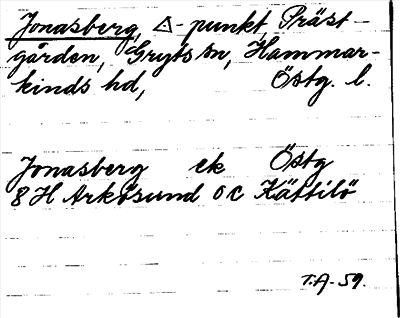 Jonasberg, △-punkt, Präst-
gården, Gryts sn, Hammar-
kinds hd, Östg. l.
Jonasberg ek Östg
8 H Arkösund 0 c Kättilö
T.A-59.